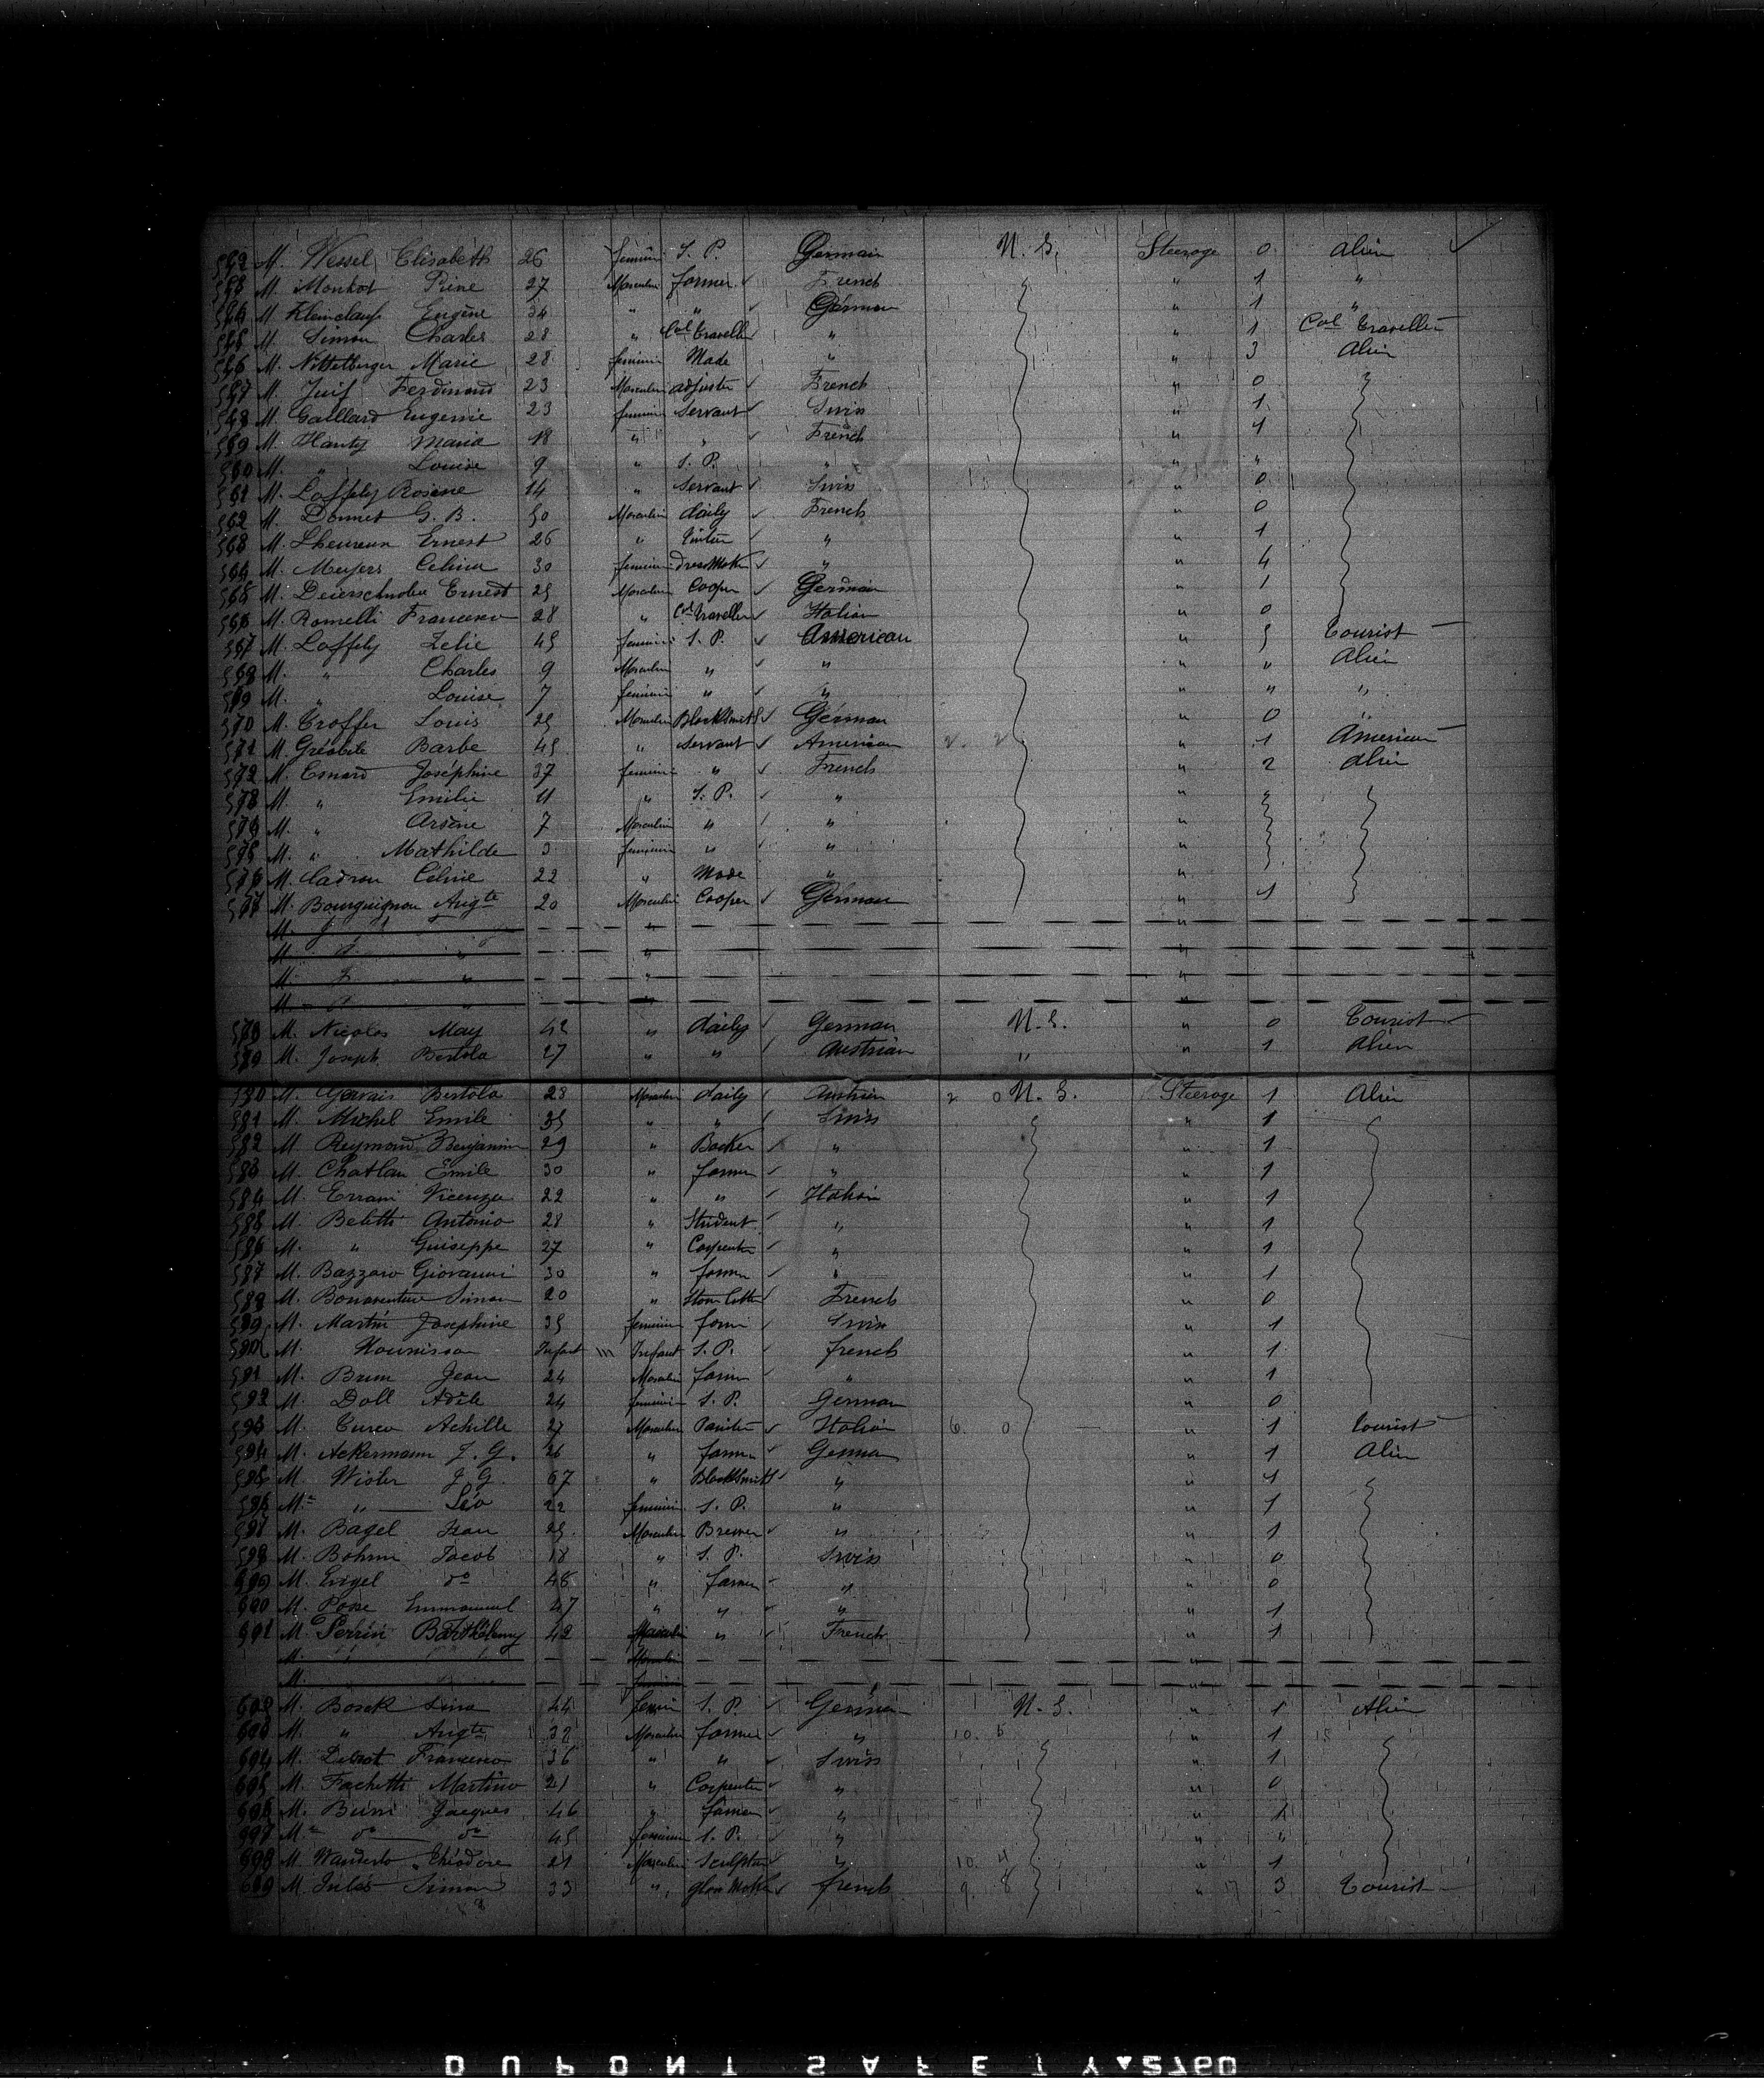 M. Wessel Elisabeth 26 feminin S. P. Germain U. S. Steerage 0 Alien
M. Monhot 27 Masculin farmer French " 1 "
M. Eugène 34 " " German " 1 "
M. Simon Charles 28 " Cal Traveller " " 1 Cal Traveller
M. Nittelberger Marie 28 feminin Made " " 3 Alien
M. Juif Ferdinand 23 Masculin adjuster French " 0
M. Gaillard Eugenie 23 feminin Servant Swiss " 1
M. Hanty Maria 18 " " French " 1
M. " Louise 9 " S. P. " " "
M. Loffely Rosine 14 " Servant Swiss " 0
M. Donnet G. B. 50 Masculin daily French " 0
M. Lheureux Ernest 26 " " " 1
M. Meyers Celina 30 feminin dressMaker " " 4
M. Ernest 25 Masculin Cooper German " 1
M. Romelli Francesco 28 " Cal traveller Italian " 0
M. Loffely Zelie 45 feminin S. P. American " 5 Tourist
M. " Charles 9 Masculin " " " " Alien
M. " Louise 7 feminin " " " " "
570 M. Troffer Louis 25 Masculin BlackSmith German " 0 "
571 M. Barbe 45 " Servant American 2. 2. " 1 American
572 M. Esnard Joséphine 37 feminin " French " 2 Alien
573 M. " Emilie 11 " S. P. " " "
574 M. " Arsène 7 Masculin " " "
575 M. " Mathilde 3 feminin " " "
576 M. Céline 22 " Made " "
577 M. Bourguignon Augte 20 Masculin Cooper German " 1
578 M. Nicolas May 42 " daily German U. S. " 0 Tourist
579 M. Joseph Bertola 27 " " Austrian " " 1 Alien
580 M. Gervais Bertola 23 Masculin daily Austrien 2 0 U. S. Steerage 1 Alien
581 M. Michel Emile 35 " " Swiss " 1
582 M. Reymond Benjamin 29 " Backer " " 1
583 M. Chatlan Emile 30 " farmer " " 1
584 M. Errani Vicenzo 22 " " Italian " 1
585 M. Beletti Antonio 28 " Student " " 1
586 M. " Guiseppe 27 " Carpenter " " 1
587 M. Bazzaro Giovanni 30 " farmer " " 1
588 M. Bonaventure Simon 20 " Stone Cutter French " 0
589 M. Martin Josephine 35 feminin farm Swiss " 1
590 M. Hounisson Infant Infant S. P. french " 1
591 M. Brun Jean 24 Masculin farmer " " 1
592 M. Doll Adèle 24 feminin S. P. German " 0
593 M. Turco Achille 27 Masculin Painter Italian 6. 0 " 1 tourist
594 M. Ackermann J. G. 26 " farmer German " 1 Alien
595 M. Wisler J. G. 67 " BlackSmith " " 1
596 M " Léo 22 feminin S. P. " " 1
597 M. Bagel Jean 25 Masculin Brewer " " 1
598 M. Bohrm Jacob 18 " S. P. Swiss " 0
599 M. Engel do 48 " farmer " " 0
600 M. Posse Emmanuel 47 " " " " 1
601 M. Perrin Barthélemy 42 Masculin " French " 1
602 M. Bosck Lina 44 femin S. P. German U. S. " 1 Alien
603 M. " Augte 32 Masculin farmer " 10. 5 " 1 15
604 M. Francesco 36 " " Swiss " 1
605 M. Fachetti Martino 21 " Carpenter " " 0
606 M. Burri Jacques 46 " farmer " " 1
607 M do do 45 feminin S. P. " " "
608 M. Théodore 21 Masculin Sculptor " 10. 4 " 1
609 M. Jules Simon 33 " glass Maker french 9. 8 " 17 3 Tourist
DUPONT SAFETY 2760